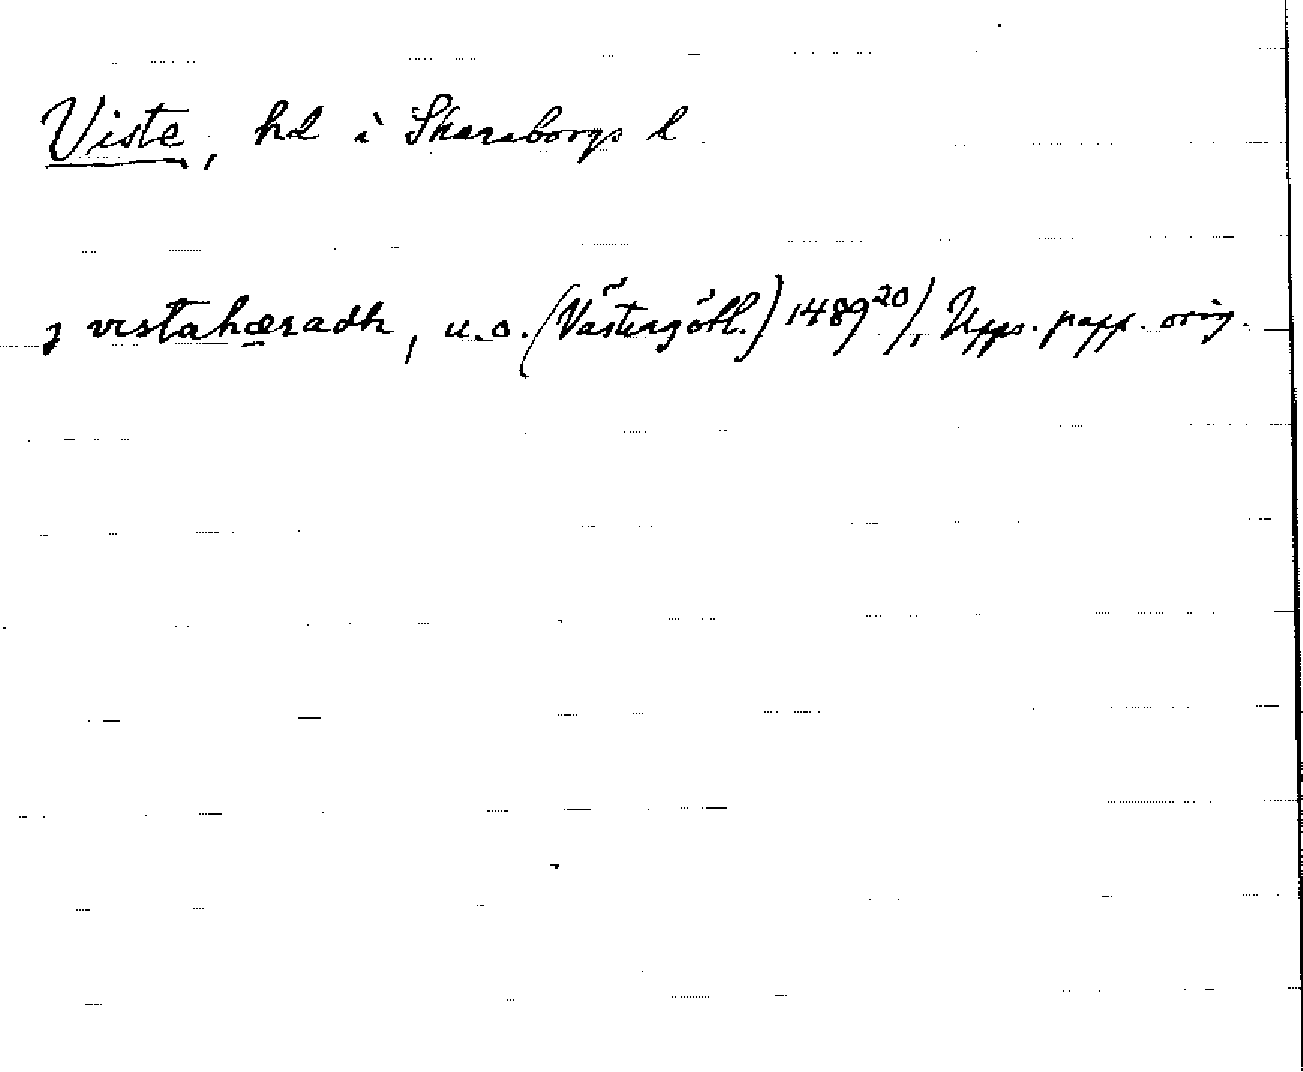 Viste, hd i Skaraborgs l
j vistahæradh, u.o. (Västergötl.) 1489 20/, Upps. papp. orig.